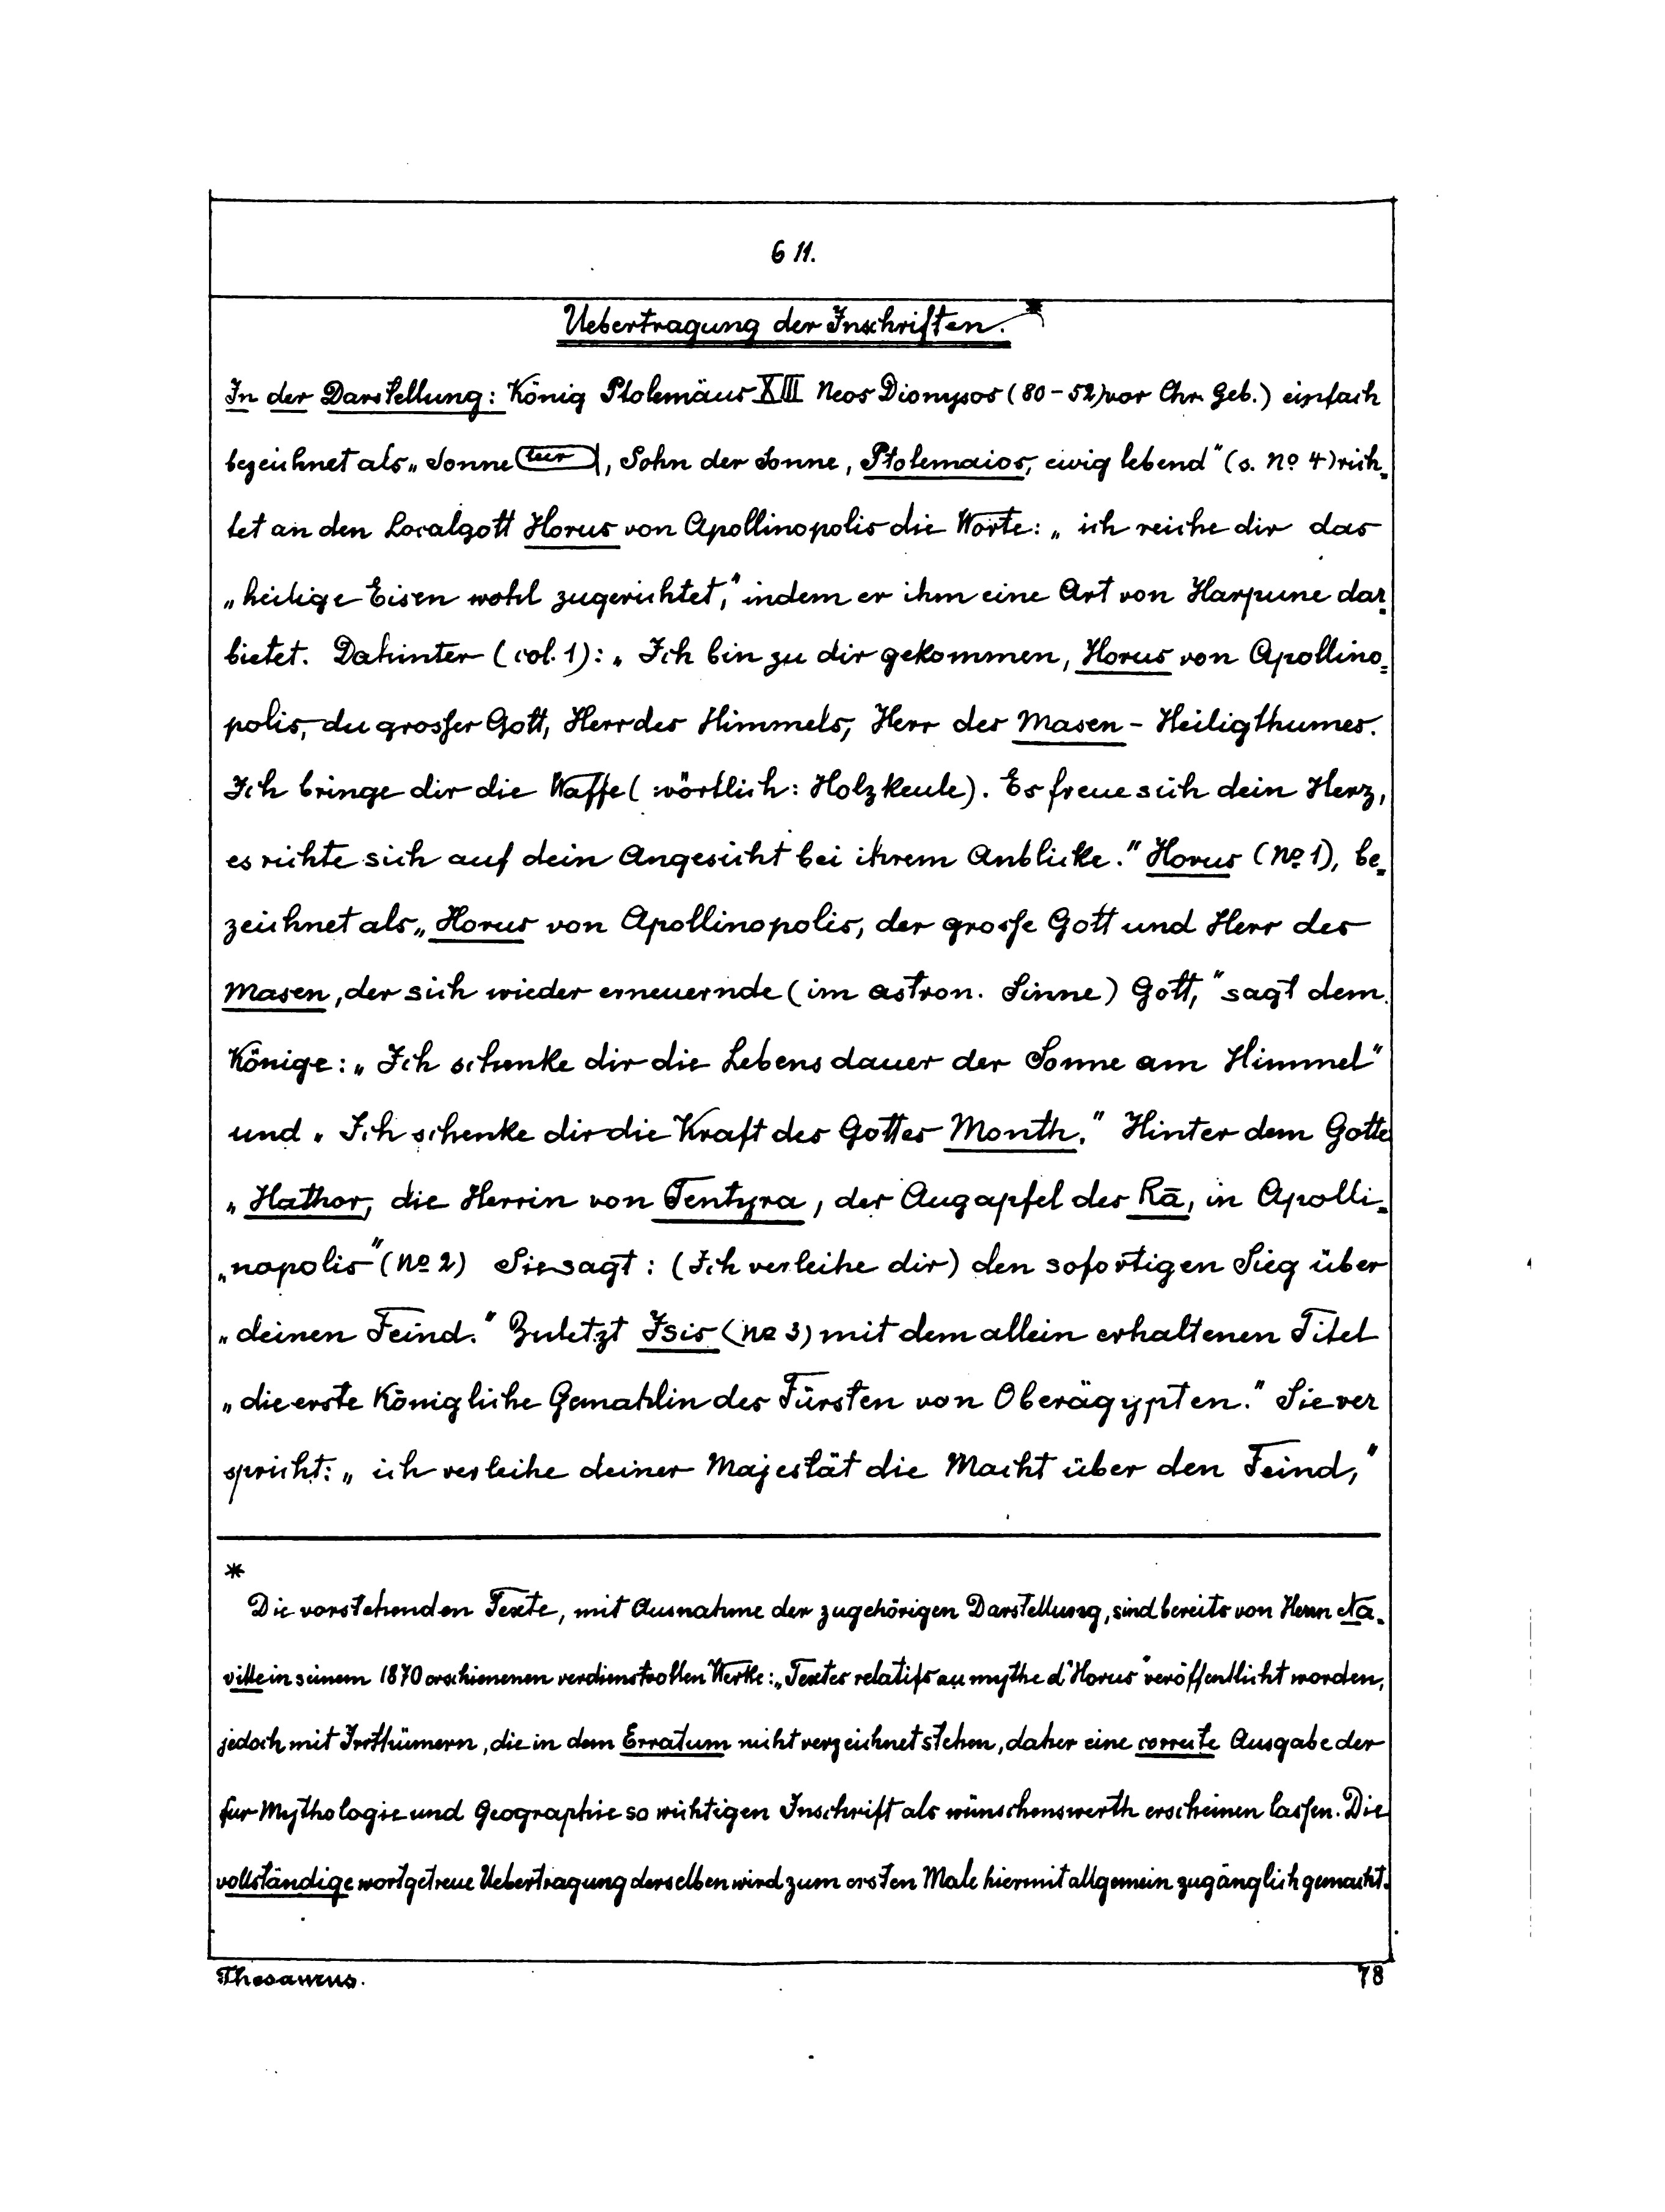 611.
Uebertragung der Inschriften.*
In der Darstellung: König Ptolemäus XIII Neos Dionysos (80-52) vor Chr. Geb.) einfach
bezeichnet als „Sonne, Sohn der Sonne, Ptolemaios, ewig lebend" (s. No 4) rich=
tet an den Localgott Horus von Apollinopolis die Worte: „ich reiche dir das
„heilige Eisen wohl zugerichtet," indem er ihm eine Art von Harpune dar=
bietet. Dahinter (col. 1): „Ich bin zu dir gekommen, Horus von Apollino=
polis, du grosser Gott, Herr des Himmels, Herr des Masen-Heiligthumes.
Ich bringe dir die Waffe (wörtlich: Holzkeule). Es freue sich dein Herz,
es richte sich auf dein Angesicht bei ihrem Anblicke." Horus (No 1), be=
zeichnet als „Horus von Apollinopolis, der grosse Gott und Herr des
Masen, der sich wieder erneuernde (im astron. Sinne) Gott," sagt dem
Könige: „Ich schenke dir die Lebensdauer der Sonne am Himmel"
und „Ich schenke dir die Kraft des Gottes Month." Hinter dem Gotte
„Hathor, die Herrin von Tentyra, der Augapfel des Rā, in Apolli=
„nopolis" (No 2) Sie sagt: (Ich verleihe dir) den sofortigen Sieg über
„deinen Feind." Zuletzt Isis (No 3) mit dem allein erhaltenen Titel
„die erste Königliche Gemahlin des Fürsten von Oberägypten." Sie ver
spricht: „ich verleihe deiner Majestät die Macht über den Feind,"
*
Die vorstehenden Texte, mit Ausnahme der zugehörigen Darstellung, sind bereits von Herrn Na=
ville in seinem 1870 erschienenen verdienstvollen Werke: „Textes relatifs au mythe d'Horus" veröffentlicht worden,
jedoch mit Irrthümern, die in dem Erratum nicht verzeichnet stehen, daher eine correcte Ausgabe der
fur Mythologie und Geographie so wichtigen Inschrift als wünschenswerth erscheinen lassen. Die
vollständige wortgetreue Uebertragung derselben wird zum ersten Male hiermit allgemein zugänglich gemacht.
Thesaurus.
78